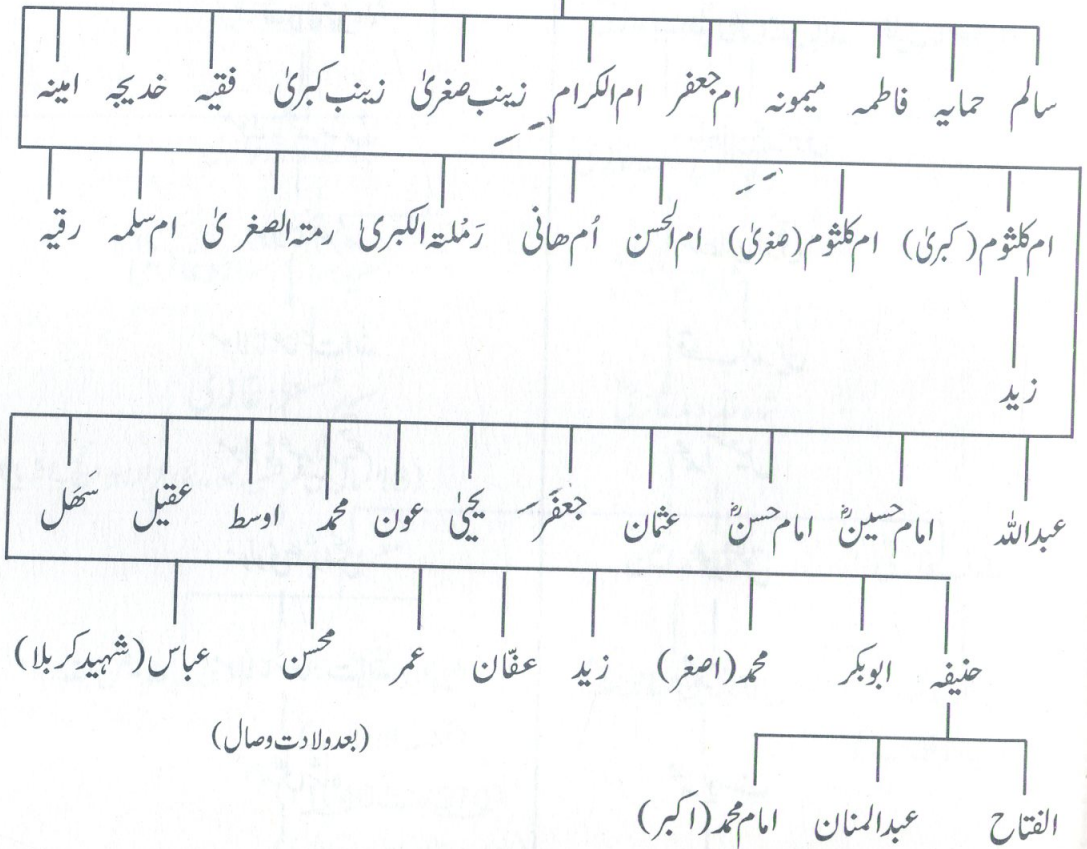 سالم حمایہ فاطمہ میمونہ ام جعفر ام الکرام زینب صغریٰ زینب کبریٰ فقیہ خدیجہ امینہ
ام کلثوم (کبریٰ) ام کلثوم (صغریٰ) ام الحسن اُم ھانی رَمْلتہ الکبریٰ رمتہ الصغریٰ ام سلمہ رقیہ
زید
عبداللہ امام حسینؓ امام حسنؓ عثمان جعفر یحییٰ عون محمد اوسط عقیل سَھَل
حنیفہ ابوبکر محمد (اصغر) زید عفّان عمر محسن عباس (شہید کربلا)
(بعد ولادت وصال)
الفتاح عبدالمنان امام محمد (اکبر)